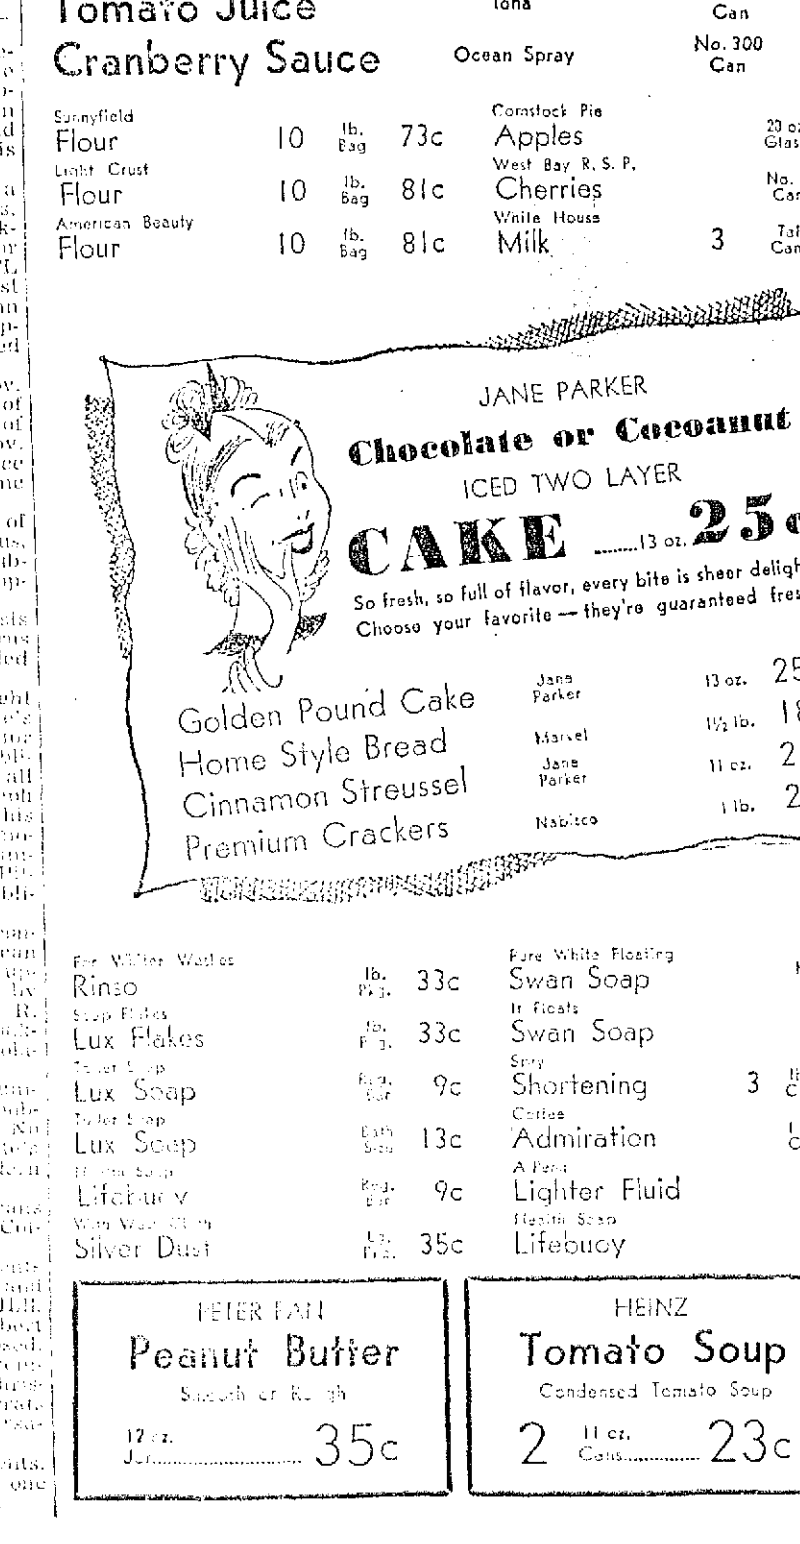 Tomato Juice Iona Can
Cranberry Sauce Ocean Spray No. 300 Can
Sunnyfield
Flour 10 lb. Bag 73c
Light Crust
Flour 10 lb. Bag 81c
American Beauty
Flour 10 lb. Bag 81c
Comstock Pie
Apples 20 oz
Glas
West Bay R. S. P.
Cherries No.
Can
White House
Milk 3 Tal
Can
JANE PARKER
Chocolate or Cocoanut
ICED TWO LAYER
CAKE ........13 oz. 25c
So fresh, so full of flavor, every bite is sheer deligh
Choose your favorite — they're guaranteed fres
Golden Pound Cake Jane Parker 13 oz. 25
Home Style Bread Marvel 1½ lb. 18
Cinnamon Streussel Jane Parker 11 oz. 2
Premium Crackers Nabisco 1 lb. 2
For Whiter Washes
Rinso lb. Pkg. 33c
Soap Flakes
Lux Flakes lb. Pkg. 33c
Toilet Soap
Lux Soap Reg. Bar 9c
Toilet Soap
Lux Soap Bath Size 13c
Health Soap
Lifebuoy Reg. Bar 9c
With Wash Cloth
Silver Dust Lg. Pkg. 35c
Pure White Floating
Swan Soap
It Floats
Swan Soap
Spry
Shortening 3
Coffee
Admiration
A Penn
Lighter Fluid
Health Soap
Lifebuoy
PETER PAN
Peanut Butter
Smooth or Rough
12 oz.
Jar 35c
HEINZ
Tomato Soup
Condensed Tomato Soup
2 11 oz.
Cans 23c